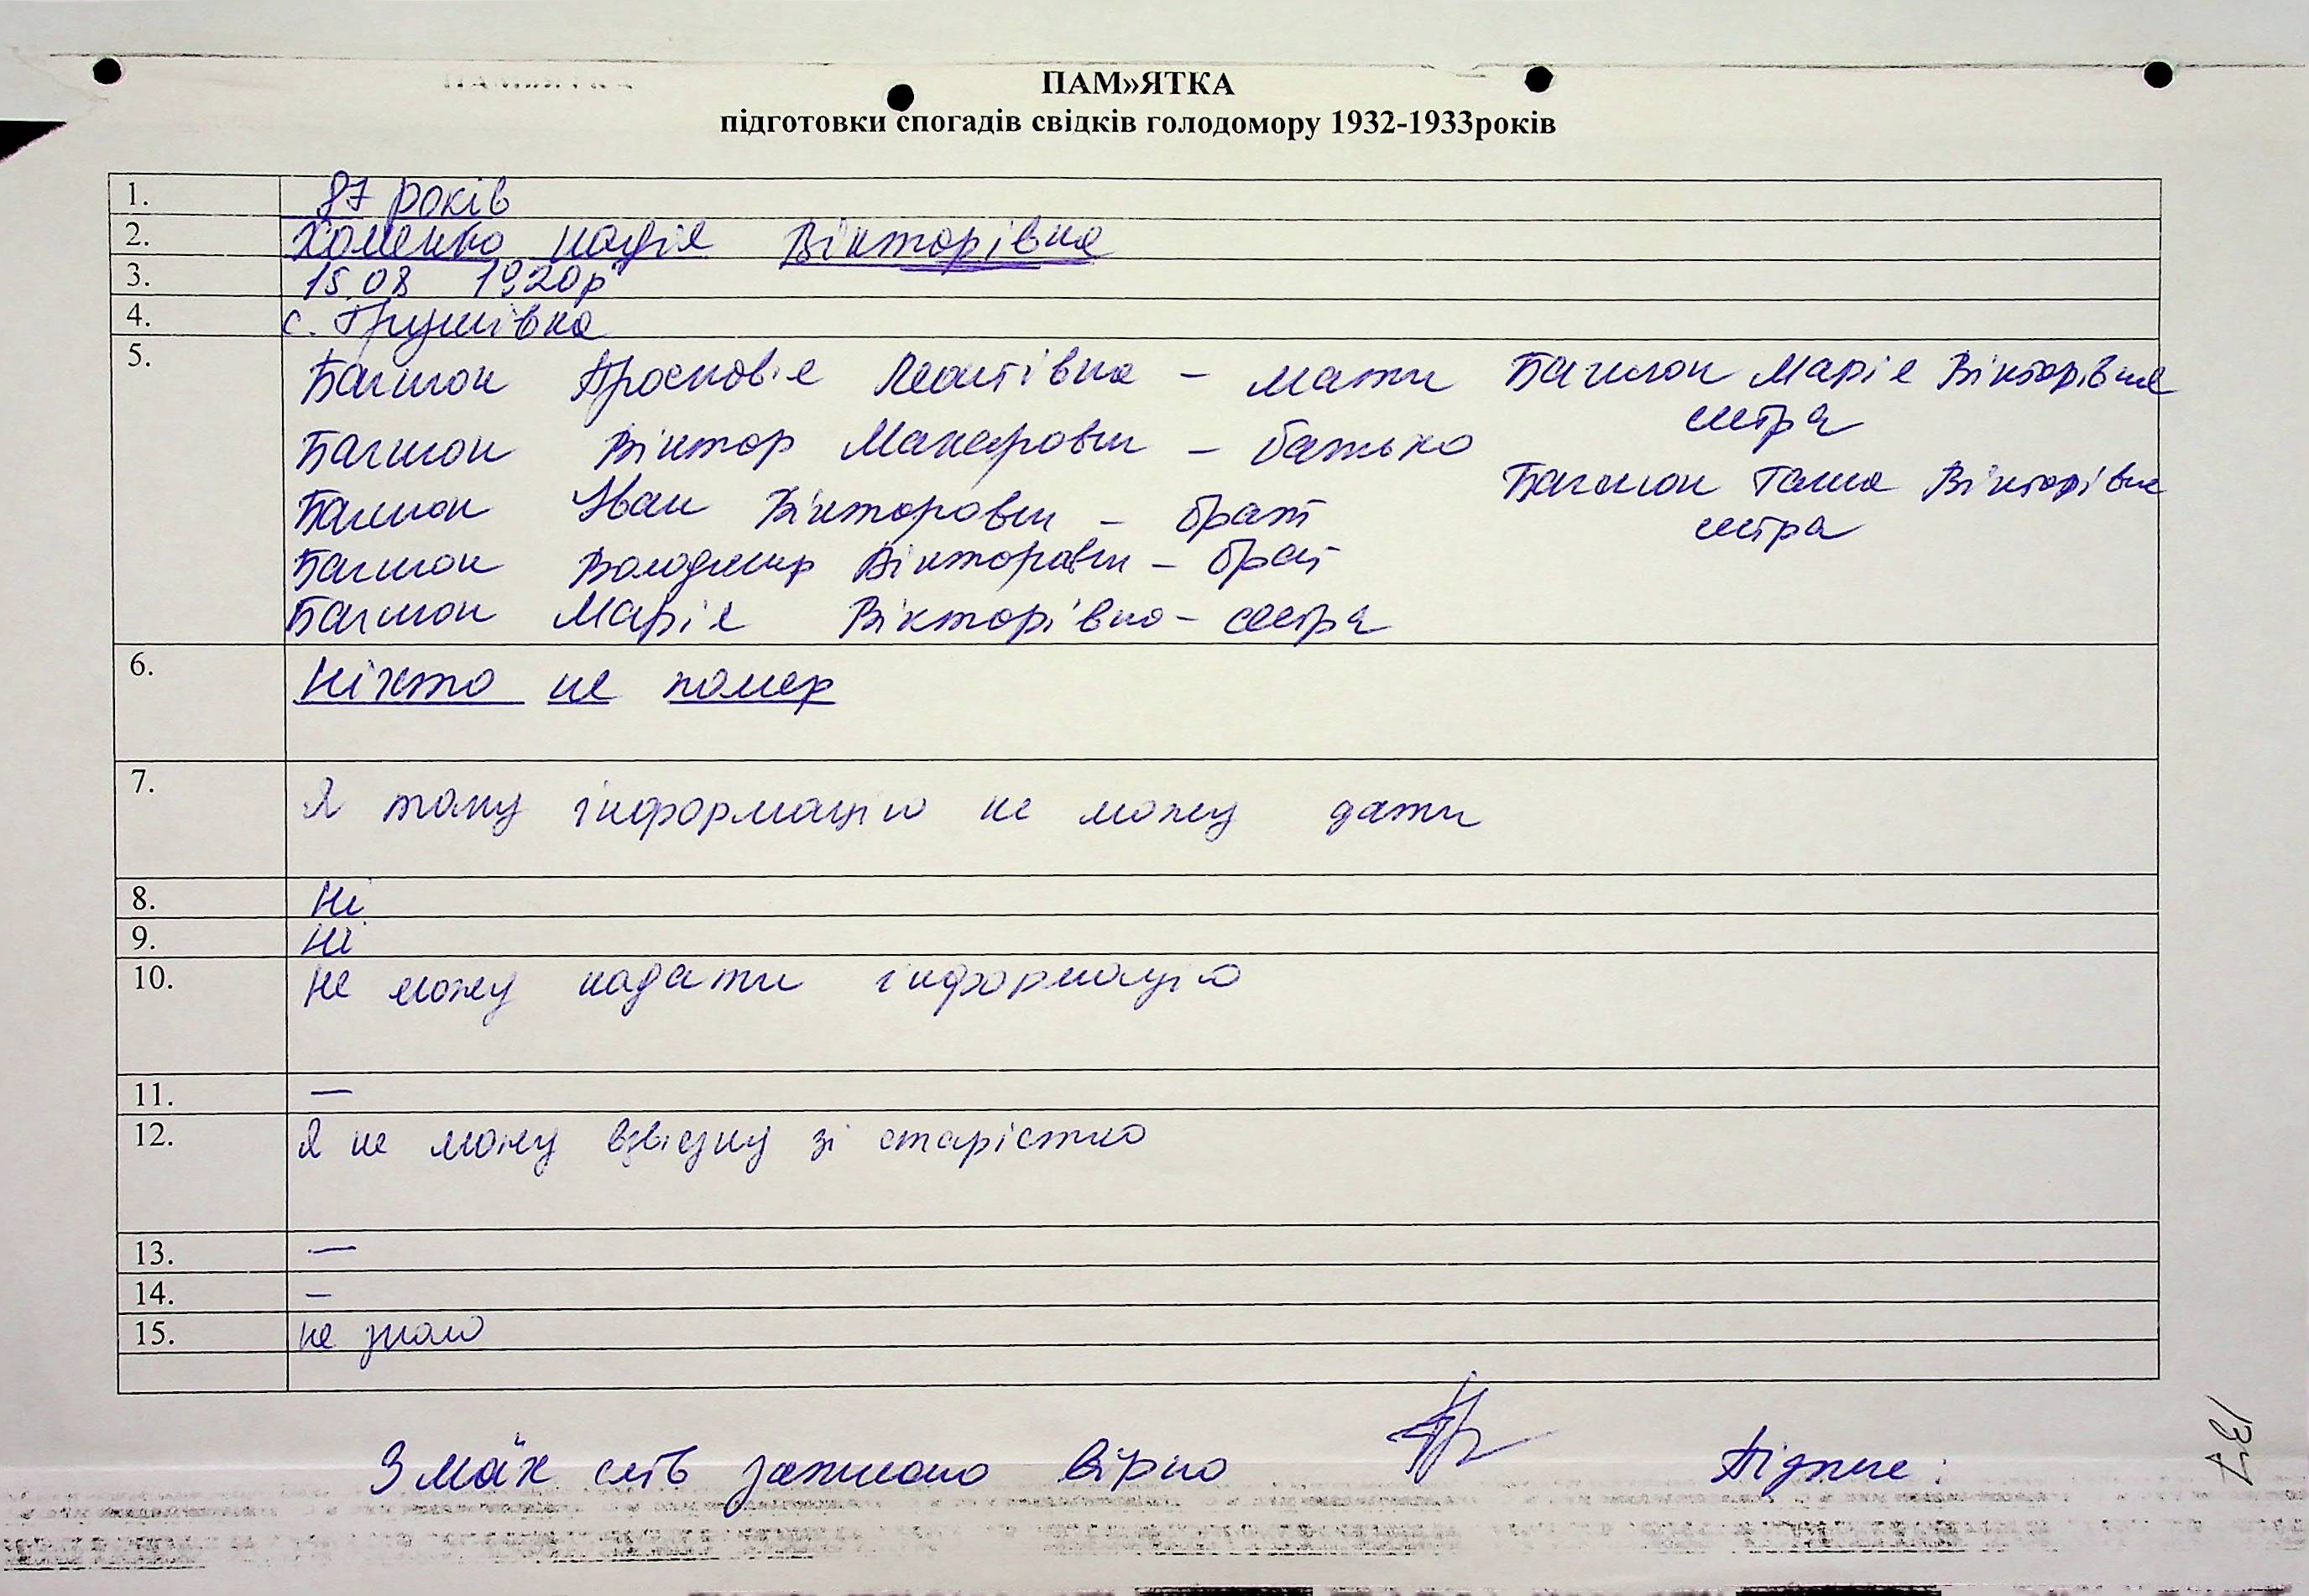 ПАМ»ЯТКА
підготовки спогадів свідків голодомору 1932-1933років
1. 87 років
2. Хоменко Надія Вікторівна
3. 15.08 1920р
4. с. Грушівка
5.
Багмон Просковія Леонтівна – мати
Багмон Віктор Макарович – батько
Багмон Іван Вікторович – брат
Багмон Володимир Вікторович – брат
Багмон Марія Вікторівна – сестра
Багмон Марія Вікторівна
сестра
Багмон Ганна Вікторівна
сестра
6. Ніхто не помер
7. Я таку інформацію не можу дати
8. Ні
9. Ні
10. Не можу надати інформацію
11. —
12. Я не можу зі старістю
13. —
14. —
15. не знаю
З моїх слів записано вірно Підпис:
137